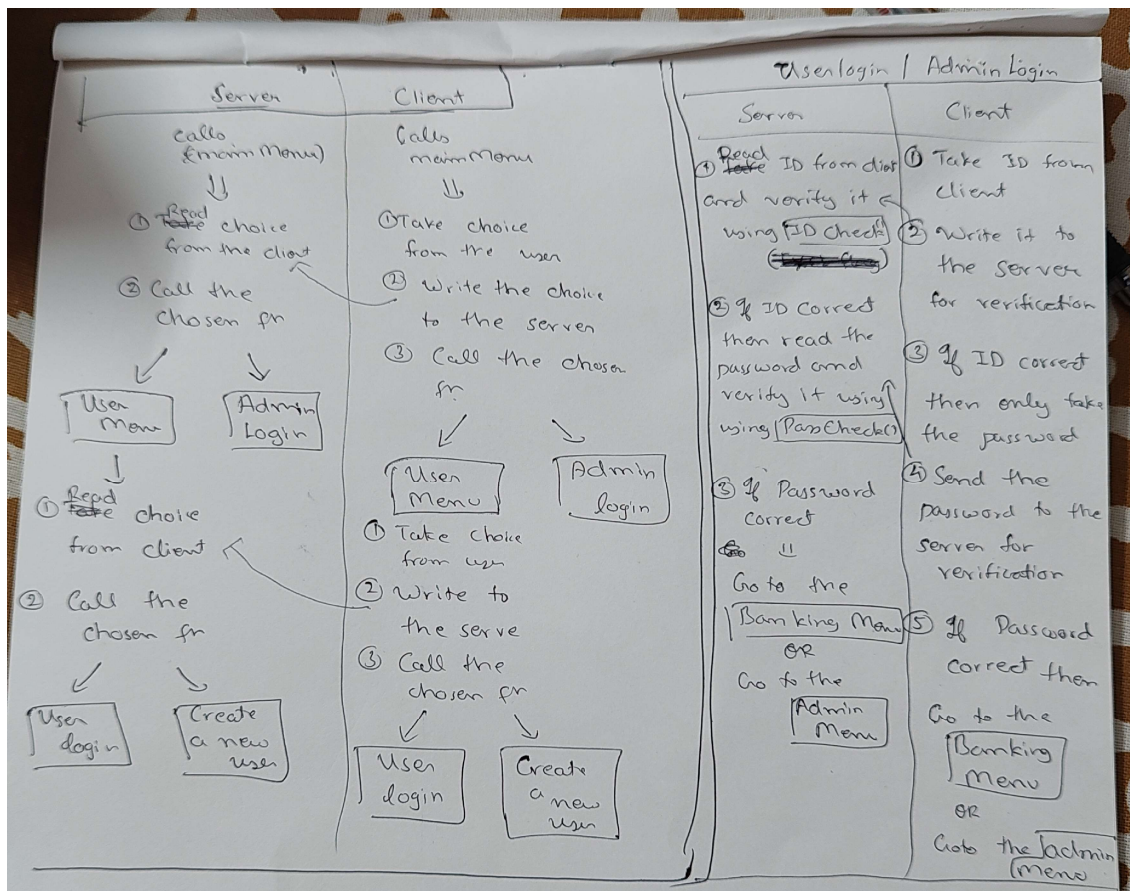 Server
calls
(mainMenu)
① Read choice
from the client
② Call the
chosen fn
User
Menu
Admin
Login
① Read choice
from client
② Call the
chosen fn
User
login
Create
a new
user
Client
Calls
mainMenu
① Take choice
from the user
② Write the choice
to the server
③ Call the chosen
fn.
User
Menu
Admin
login
① Take choice
from user
② Write to
the serve
③ Call the
chosen fn
User
login
Create
a new
user
User login / Admin Login
Server
① Read ID from
and verify it
using ID Check()
② If ID correct
then read the
password and
verify it using
using PassCheck()
③ If Password
correct
Go to the
Banking Menu
OR
Go to the
Admin
Menu
Client
① Take ID from
client
② Write it to
the server
for verification
③ If ID correct
then only take
the password
④ Send the
password to the
server for
verification
⑤ If Password
correct then
Go to the
Banking
Menu
OR
Goto the admin
menu